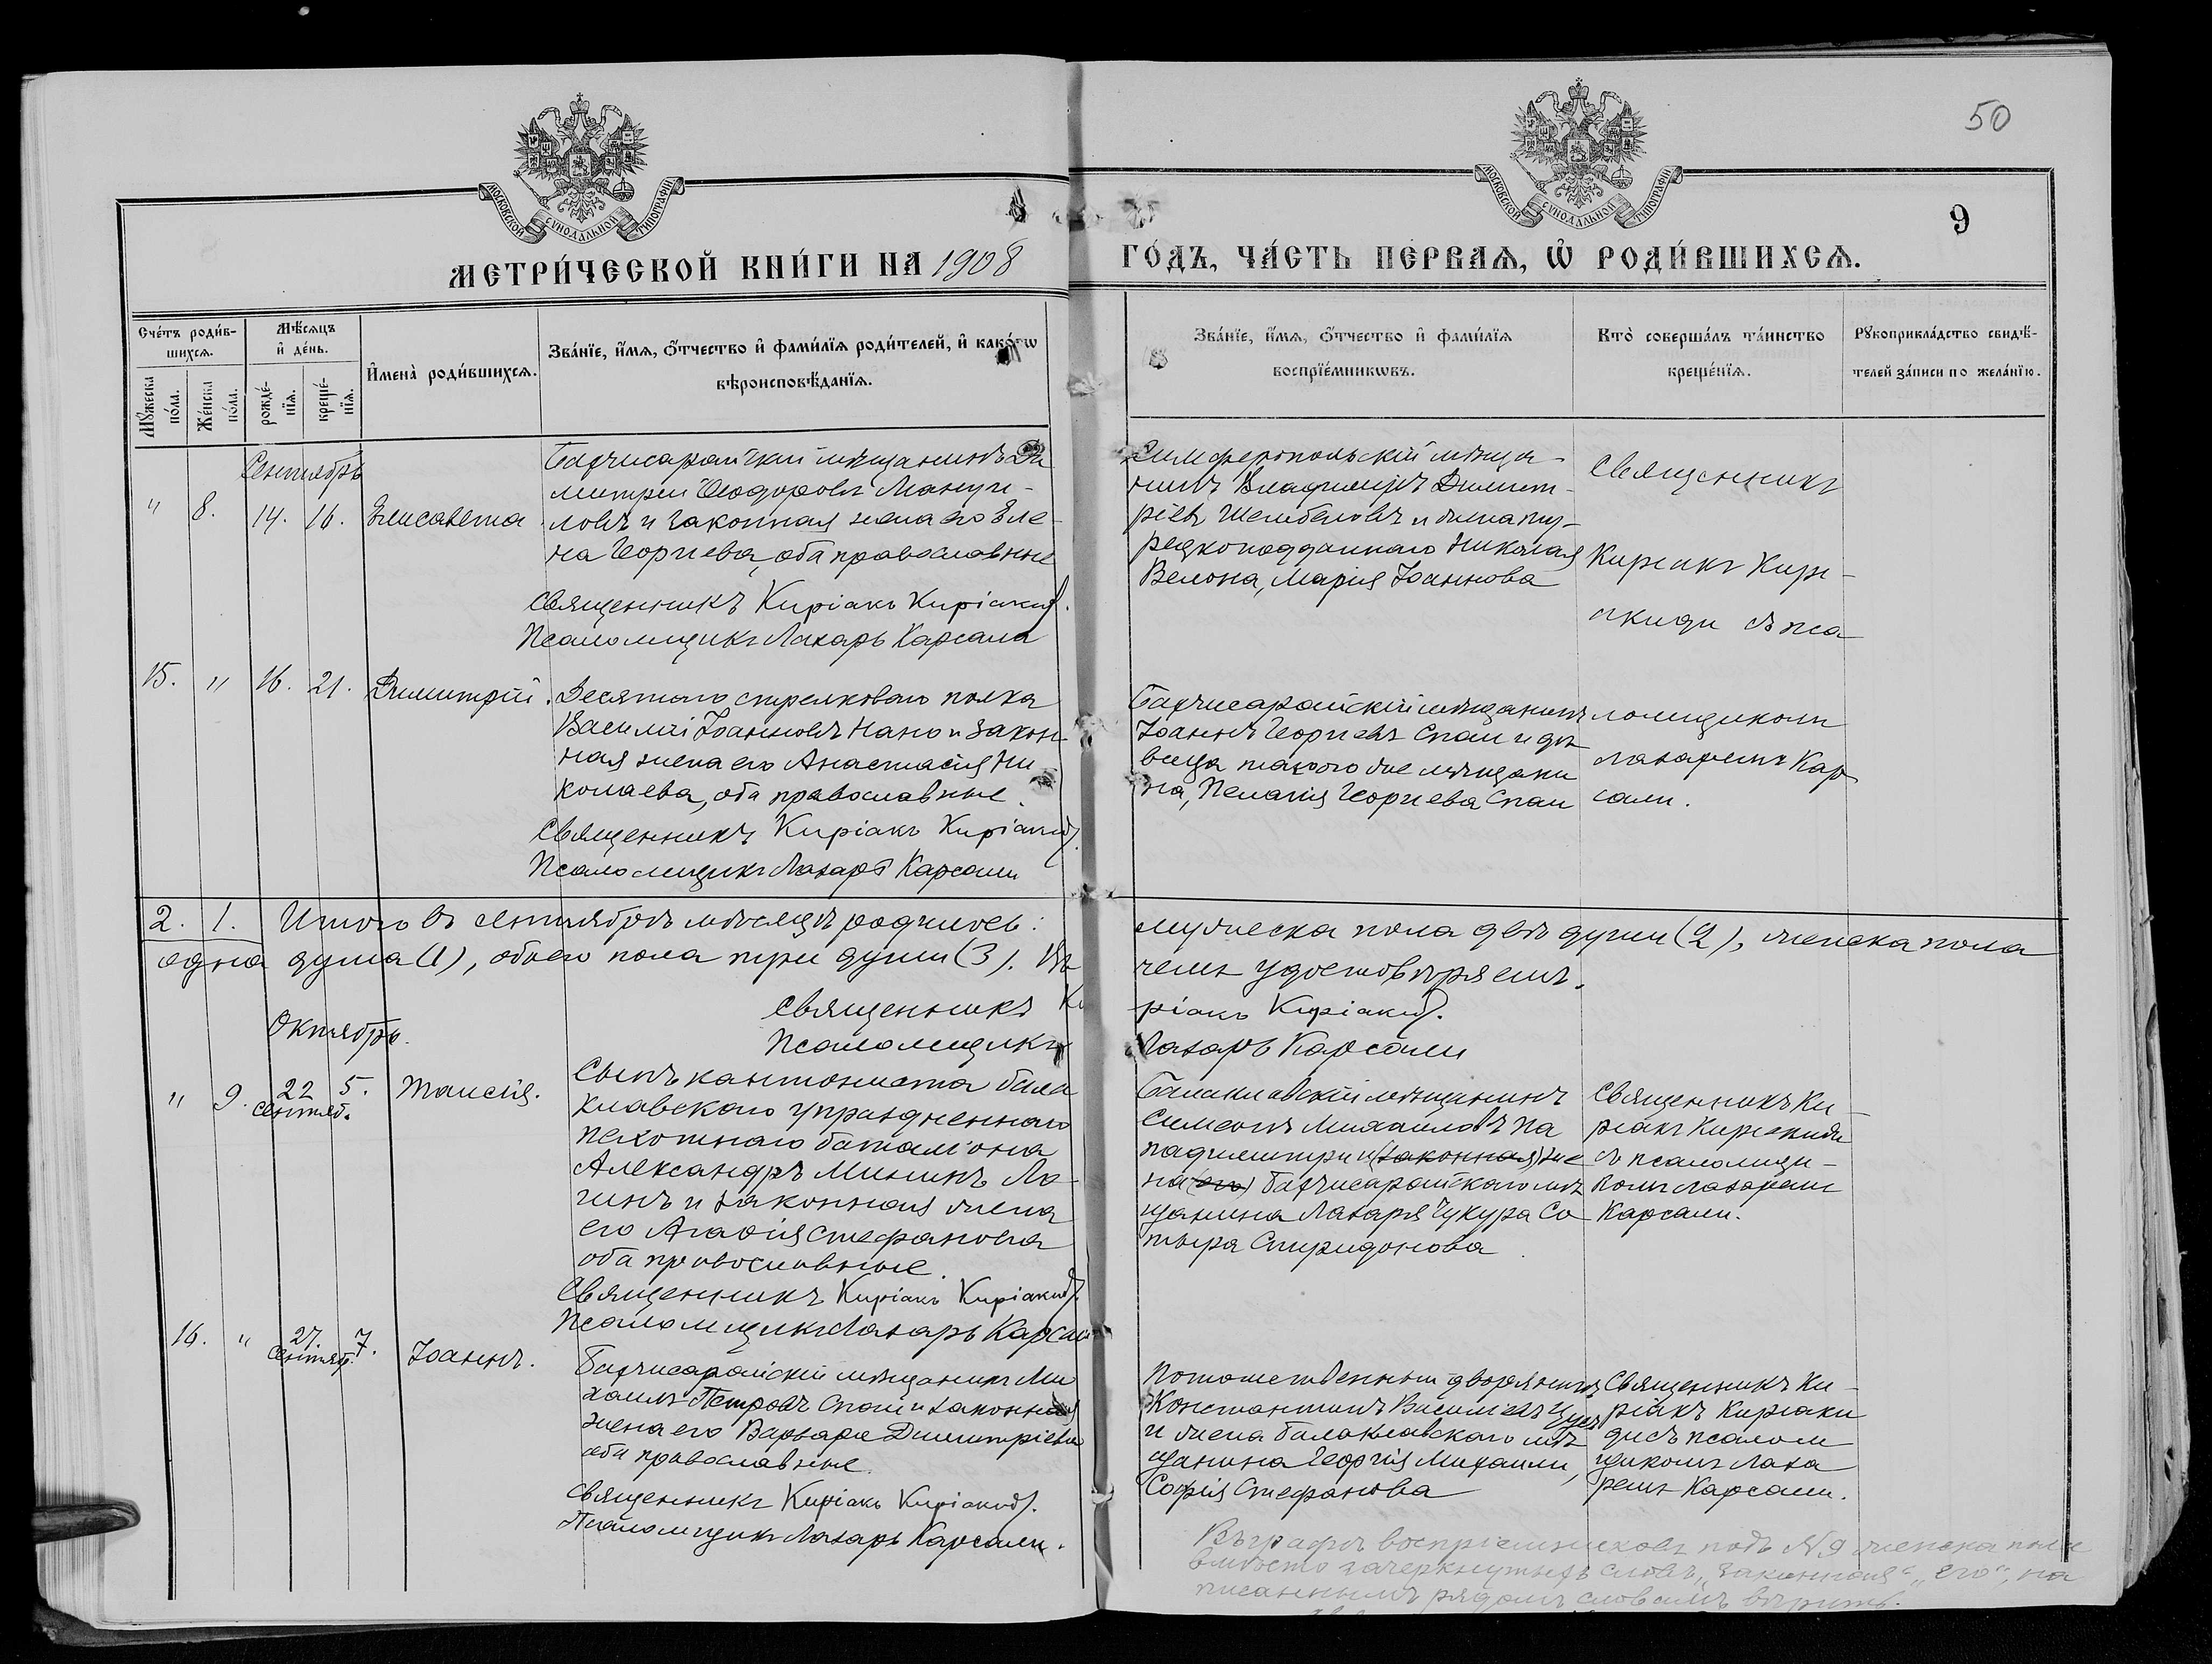 50
МОСКОВСКОЙ СѴНОДАЛЬНОЙ ТИПОГРАФІИ
МОСКОВСКОЙ СѴНОДАЛЬНОЙ ТИПОГРАФІИ
9
МЕТРИ́ЧЕСКОЙ КНИ́ГИ НА 1908
ГО́ДЪ, ЧА́СТЬ ПЕ́РВАѦ, Ѡ҆ РОДИ́ВШИХСѦ.
Сче́тъ роди́в-
шихсѧ.
Мꙋ́жеска
по́ла.
Же́нска
по́ла.
Мѣ́сѧцъ
и҆ де́нь.
рожде́-
нїѧ.
креще́-
нїѧ.
И҆мена̀ роди́вшихсѧ.
Зва́нїе, и҆́мѧ, ѻ҆́тчество и҆ фами́лїѧ роди́телей, и҆ како́гѡ
вѣроисповѣ́данїѧ.
Зва́нїе, и҆́мѧ, ѻ҆́тчество и҆ фами́лїѧ
воспрїе́мникѡвъ.
Кто̀ соверша́лъ та́инство
креще́нїѧ.
Рꙋкоприкла́дство свидѣ́-
телей за́писи по жела́нїю.
Сентябрь
" 8. 14. 16. Елисавета
Бахчисарайскій мѣщанинъ Ди
митрій Ѳеодоровъ Мануи-
ловъ и законная жена его Еле-
на Георгіева, оба православные
Священникъ Киріакъ Киріакиди.
Псаломщикъ Лазарь Карсали
Симферопольскій мѣща-
нинъ Владиміръ Димит-
ріевъ и жена ту-
рецкоподданнаго Николая
Велона, Марія Іоаннова
Священникъ
Киріакъ Кирі-
акиди съ пса
15. " 16. 21. Димитрій.
Десятого стрелковаго полка
Василій Іоанновъ Нано и закон-
ная жена его Анастасія Ни
колаева, оба православные.
Священникъ Киріакъ Киріакиди.
Псаломщикъ Лазарь Карсали
Бахчисарайскій мѣщанинъ
Іоаннъ Георгіевъ Спаи и дѣ
вица такого же мѣщани
на, Пелагія Георгіева Спаи
ломщикомъ
Лазаремъ Кар
сали.
2. 1. Итого въ сентябрѣ мѣсяцѣ родилось:
одна душа (1), обоего пола три души (3). Въ
мужеска пола двѣ души (2), женска пола
чемъ удостовѣряемъ.
Священникъ Ки
ріакъ Киріакиди.
Псаломщикъ
Лазарь Карсали
Октябрь.
" 9. 22 5. Таисія.
Сентяб.
Сынъ кантониста бала
клавскаго упраздненнаго
пехотнаго баталіона
Александръ Мининъ Ла-
гинъ и законная жена
его Агафія Стефанова
оба православные.
Священникъ Киріакъ Киріакиди.
Псаломщикъ Лазарь Карсали
Балаклавскій мѣщанинъ
Симеонъ Михаиловъ Па
падимитри и (законная) же
на (его) бахчисарайскаго мѣ
щанина Лазаря Чукура Со
тыра Спиридонова
Священникъ Ки-
ріакъ Киріакиди
съ псаломщи-
комъ Лазаремъ
Карсали.
16. " 27. 7. Іоаннъ.
Сентябр.
Бахчисарайскій мѣщанинъ Ми
хаилъ Петровъ Спаи и законная
жена его Варвара Димитріева
оба православные.
Священникъ Киріакъ Киріакиди.
Псаломщикъ Лазарь Карсали.
Потомственный дворянинъ
Константинъ Василіевъ
и жена балаклавскаго мѣ
щанина Георгія Михаили,
Софія Стефанова
Священникъ Ки-
ріакъ Киріаки
ди съ псалом
щикомъ Лаза
ремъ Карсали.
Въ графѣ воспріемниковъ подъ № 9 женска пола
вмѣсто зачеркнутыхъ словъ „законная“ „его“, на
писаннымъ рядомъ словамъ вѣрить.